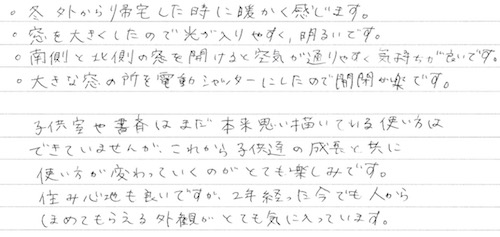 。冬 外から帰宅した時に暖かく感じます。
。窓を大きくしたので光が入りやすく、明るいです。
。南側と北側の窓を開けると空気が通りやすく気持ちが良いです。
。大きな窓の所を電動シャッターにしたので開閉が楽です。
子供室や書斎はまだ本来思い描いている使い方は
できていませんが、これから子供達の成長と共に
使い方が変わっていくのがとても楽しみです。
住み心地も良いですが、2年経った今でも人から
ほめてもらえる外観がとても気に入っています。